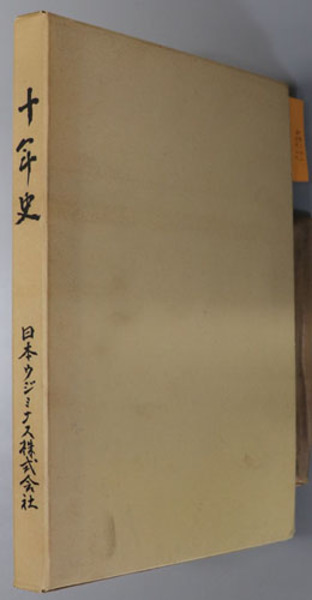 十年史
日本ウジミナス株式会社